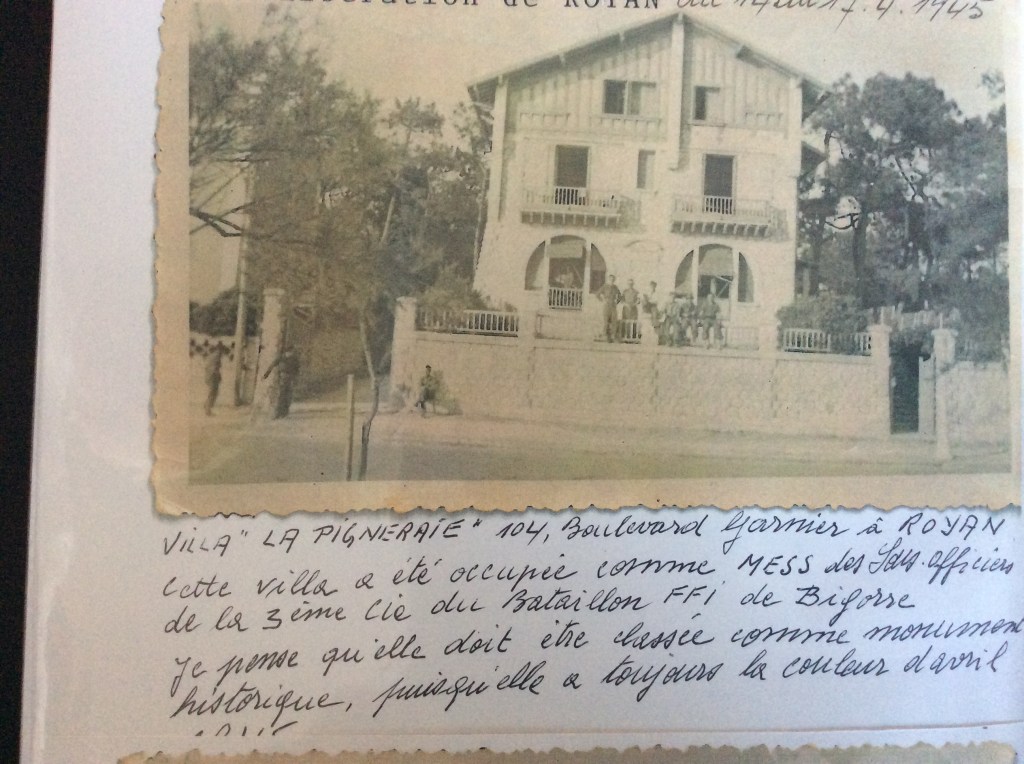 de ROYAN du 14 au 17.4.1945
VILLA " LA PIGNERAIE " 104, Boulevard Garnier à ROYAN
Cette villa a été occupée comme MESS des Sous-officiers
de la 3ème Cie du Bataillon FFI de Bigorre
Je pense qu'elle doit être classée comme monument
historique, puisqu'elle a toujours la couleur d'avril